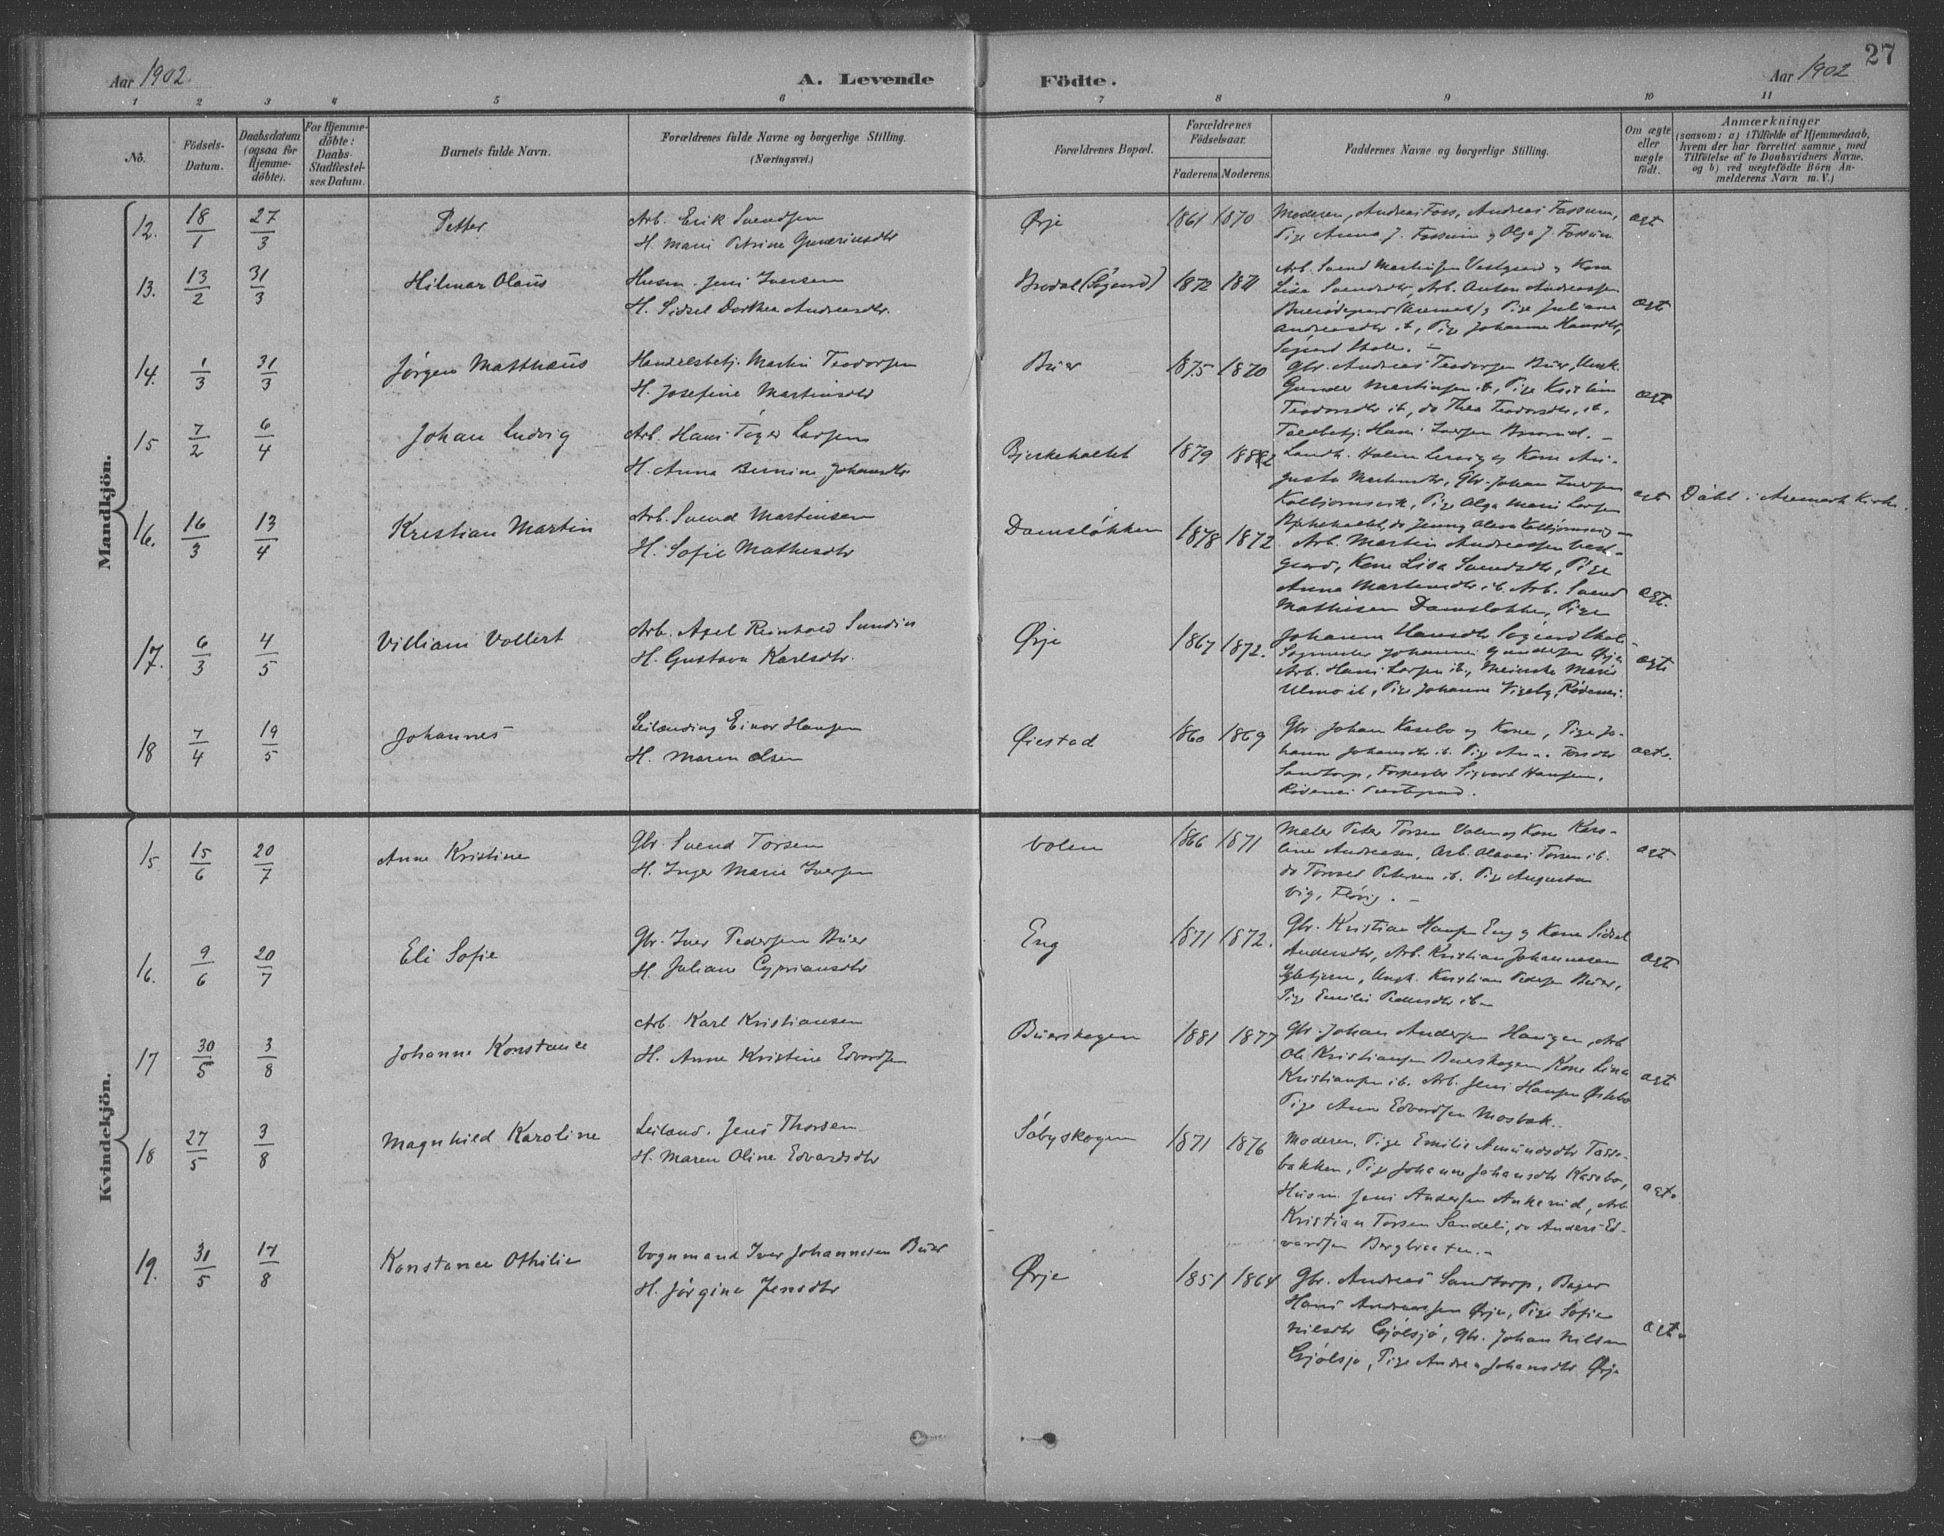 27
Aar 1902 A. Levende Födte. Aar 1902
1 2 3 4 5 6 7 8 9 10 11
No. Födsels-Datum. Daabsdatum (ogsaa for Hjemme-döbte). For Hjemme-döbte: Daabs-Stadfæstel-ses Datum. Barnets fulde Navn. Forældrenes fulde Navne og borgerlige Stilling. (Næringsvei.) Forældrenes Bopæl. Forældrenes Födselsaar. Faderens Moderens. Faddernes Navne og borgerlige Stilling. Om ægte eller uægte födt. Anmærkninger (saasom: a) i Tilfælde af Hjemmedaab, hvem der har forrettet samme, med Tilföielse af to Daabsvidners Navne. og b) ved uægtefödte Börn An-melderens Navn m. V.)
Mandkjön.
12. 18/1 27/3 Petter Arb. Erik Svendsen
H. Mari Petrine Guneriusdtr Ørje 1861 1870 Moderen, Andreas Foss, Andreas Fossum,
Pige Anna J. Fossum og Olga J. Fossum ægt
13. 13/2 31/3 Hilmar Olaus Husm. Jens Iversen
H. Sidsel Dorthea Andreasdtr. 1872 1871 Arb. Svend Martinsen Vestgaard og Kone
Lisa Svendsdtr, Arb. Anton Andreassen
Pige Juliane
Andreasdtr ib, Pige Johanne Hansdtr,
ægt
14. 1/3 31/3 Jørgen Matthæus Handelsbetj. Martin Teodorsen
H. Josefine Martinsdtr Buer 1875 1870 Gbr. Andreas Teodorsen Buer, Ungk.
Gunder Martinsen ib, Pige Kristine
Teodorsdtr ib, do Thea Teodorsdtr, ib.
Hans Iversen ægt
15 7/2 6/4 Johan Ludvig Arb. Hans Tøger Larsen
H. Anna Bernine Johansdtr Bjerkeholtet 1879 1882 Kone Au-
gusta Martinsdtr, Gbr. Johan Iversen
Kolbjørnsvik, Pige Olga Marie Larsen
do Jenny Olava Kolbjørnsvig ægt Døbt i Aremark Kirke.
16. 16/3 13/4 Kristian Martin Arb. Svend Martinsen
H. Sofie Mathisdtr Damsløkken 1878 1872 Arb. Martin Andreassen Vest-
gaard, Kone Lisa Svendsdtr, Pige
Anna Martinsdtr ib. Arb. Svend
Mathisen Damsløkken, Pige
Johanne Hansdtr ægt.
17. 6/3 4/5 Villiam Vollert Arb. Axel Reinhold Sundin
H. Gustava Karlsdtr. Ørje 1867 1872. Sagmester Johannes Gundersen Ørje
Arb. Hans Larsen ib, Marie
Ulmo ib, Pige Johanne Rødenes. ægt
18 7/4 19/5 Johannes Leilænding Einar Hansen
H. Maren Olsen Øiestad 1860 1869 Gbr. Johan Kasebo og Kone, Pige Jo-
hanne Johansdtr ib. Pige Torsdtr
Sandtorp, Forpagter Sigvart Hansen,
Rødenes Prestegaard. ægt.
Kvindekjön.
15 15/6 20/7 Anne Kristine Gbr. Svend Torsen
H. Inger Marie Iversen Volen 1866 1871 Maler Peter Torsen Volen og Kone Karo-
line Andreasen, Arb. Olaves Torsen ib.
do Petersen ib. Pige Augusta
Vig, ægt
16. 9/6 20/7 Eli Sofie Gbr. Iver Pedersen Buer
H. Juliane Cypriansdtr Eng 1871 1872. Gbr. Kristian Hansen Eng og Kone Sidsel
Andersdtr, Arb. Kristian Johannesen
Ungk. Kristian Pedersen Buer,
Pige Emilie Pedersdtr ib. ægt
17 30/5 3/8 Johanne Konstance Arb. Karl Kristiansen
H. Anne Kristine Edvardsen Buerskogen 1881 1877 Gbr. Johan Andersen Haugen, Arb.
Ole Kristiansen Buerskogen Kone Lina
Kristiansen ib. Arb. Jens Hansen
Pige Anne Edvardsen Mosbæk. ægt
18 27/5 3/8 Magnhild Karoline Leilænd. Jens Thorsen
H. Maren Oline Edvardsdtr Søbyskogen 1871 1876 Moderen, Pige Emilie Amundsdtr Tasse-
bakken, Pige Johanne Johansdtr Kasebo,
Husm. Jens Andersen Ankerud, Arb.
Kristian Torsen Sandeli, do Anders Ed-
vardsen Bergbraaten. ægt.
19. 31/5 17/8 Konstance Othilie Vognmand Iver Johannesen Buer
H. Jørgine Jensdtr Ørje 1851 1864 Gbr. Andreas Sandtorp, Bager
Hans Andreassen Ørje, Pige Sofie
Nilsdtr Gjølsjø, Gbr. Johan Nilsen
Gjølsjø, Pige Andrea Johansdtr Ørje ægt.